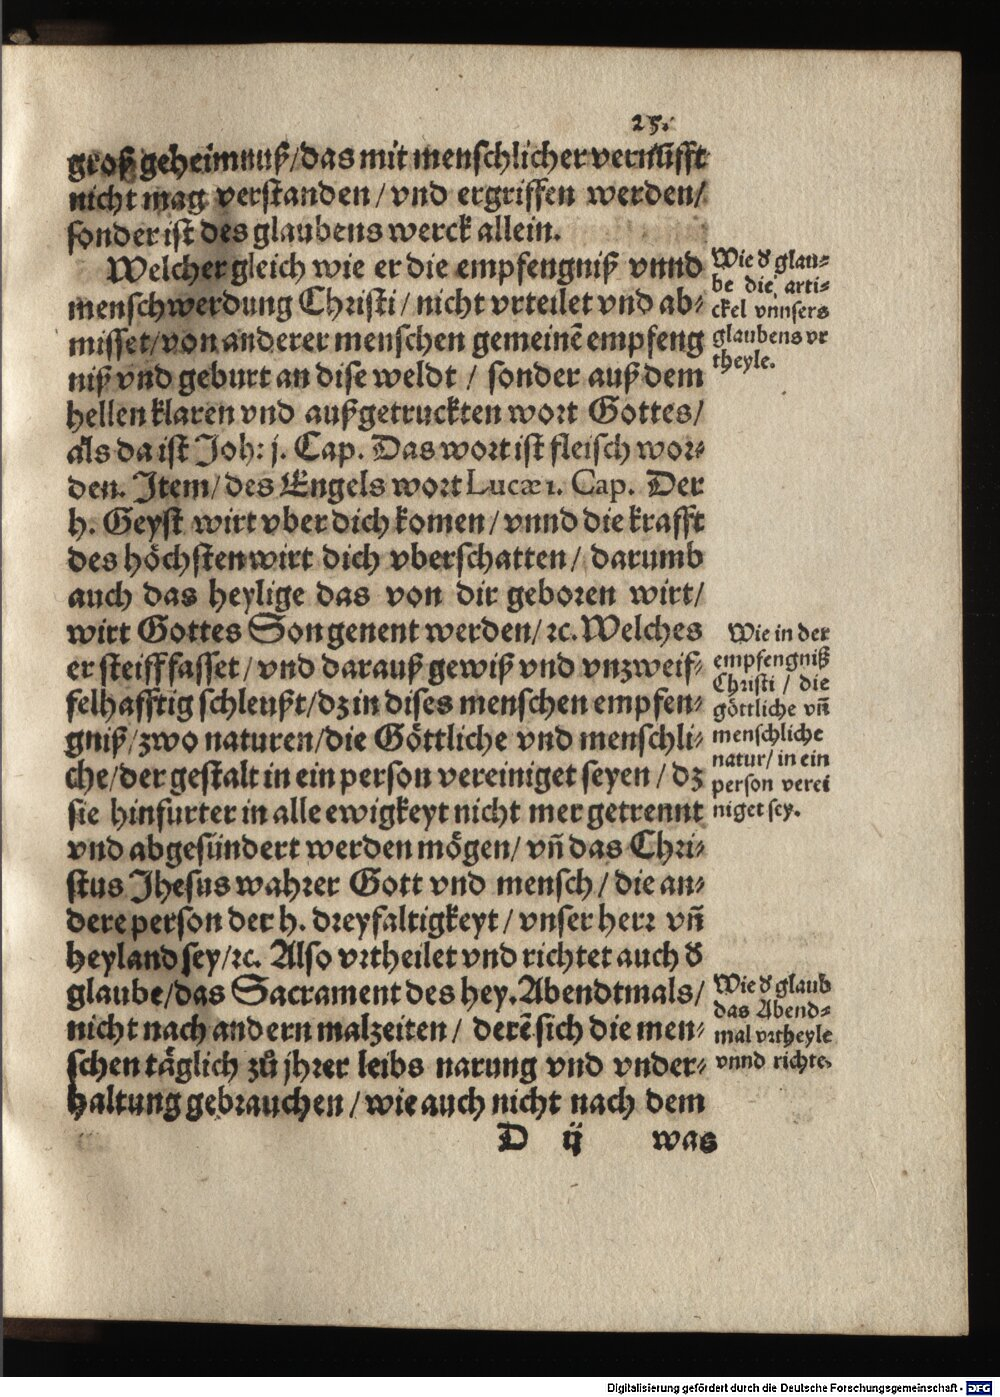 25.
groß geheimnuß/das mit menschlicher vernufft
nicht mag verstanden / vnd ergriffen werden/
sonder ist des glaubens werck allein.
Welcher gleich wie er die empfengniß vnnd
menschwerdung Christi / nicht vrteilet vnd ab-
misset/von anderer menschen gemeinē empfeng
niß vnd geburt an dise weldt / sonder auß dem
hellen klaren vnd außgetruckten wort Gottes/
als da ist Joh: j. Cap. Das wort ist fleisch wor-
den. Item/des Engels wort Lucæ 1. Cap. Der
h. Geyst wirt vber dich komen / vnnd die krafft
des höchsten wirt dich vberschatten / darumb
auch das heylige das von dir geboren wirt/
wirt Gottes Son genent werden/ ꝛc. Welches
er steiff fasset / vnd darauß gewiß vnd vnzweif-
felhafftig schleußt/dz in dises menschen empfen-
gniß/zwo naturen/die Göttliche vnd menschli-
che/der gestalt in ein person vereiniget seyen / dz
sie hinfurter in alle ewigkeyt nicht mer getrennt
vnd abgesündert werden mögen/ vñ das Chri-
stus Jhesus wahrer Gott vnd mensch / die an-
dere person der h. dreyfaltigkeyt / vnser herr vñ
heyland sey/ꝛc. Also vrtheilet vnd richtet auch d
glaube/das Sacrament des hey. Abendtmals/
nicht nach andern malzeiten / derē sich die men-
schen täglich zů jhrer leibs narung vnd vnder-
haltung gebrauchen / wie auch nicht nach dem
D ij was
Wie d glau-
be die arti-
ckel vnnsers
glaubens vr
theyle.
Wie in der
empfengniß
Christi / die
göttliche vñ
menschliche
natur/ in ein
person verei
niget sey.
Wie d glaub
das Abend-
mal vrtheyle
vnnd richte.
Digitalisierung gefördert durch die Deutsche Forschungsgemeinschaft - DFG